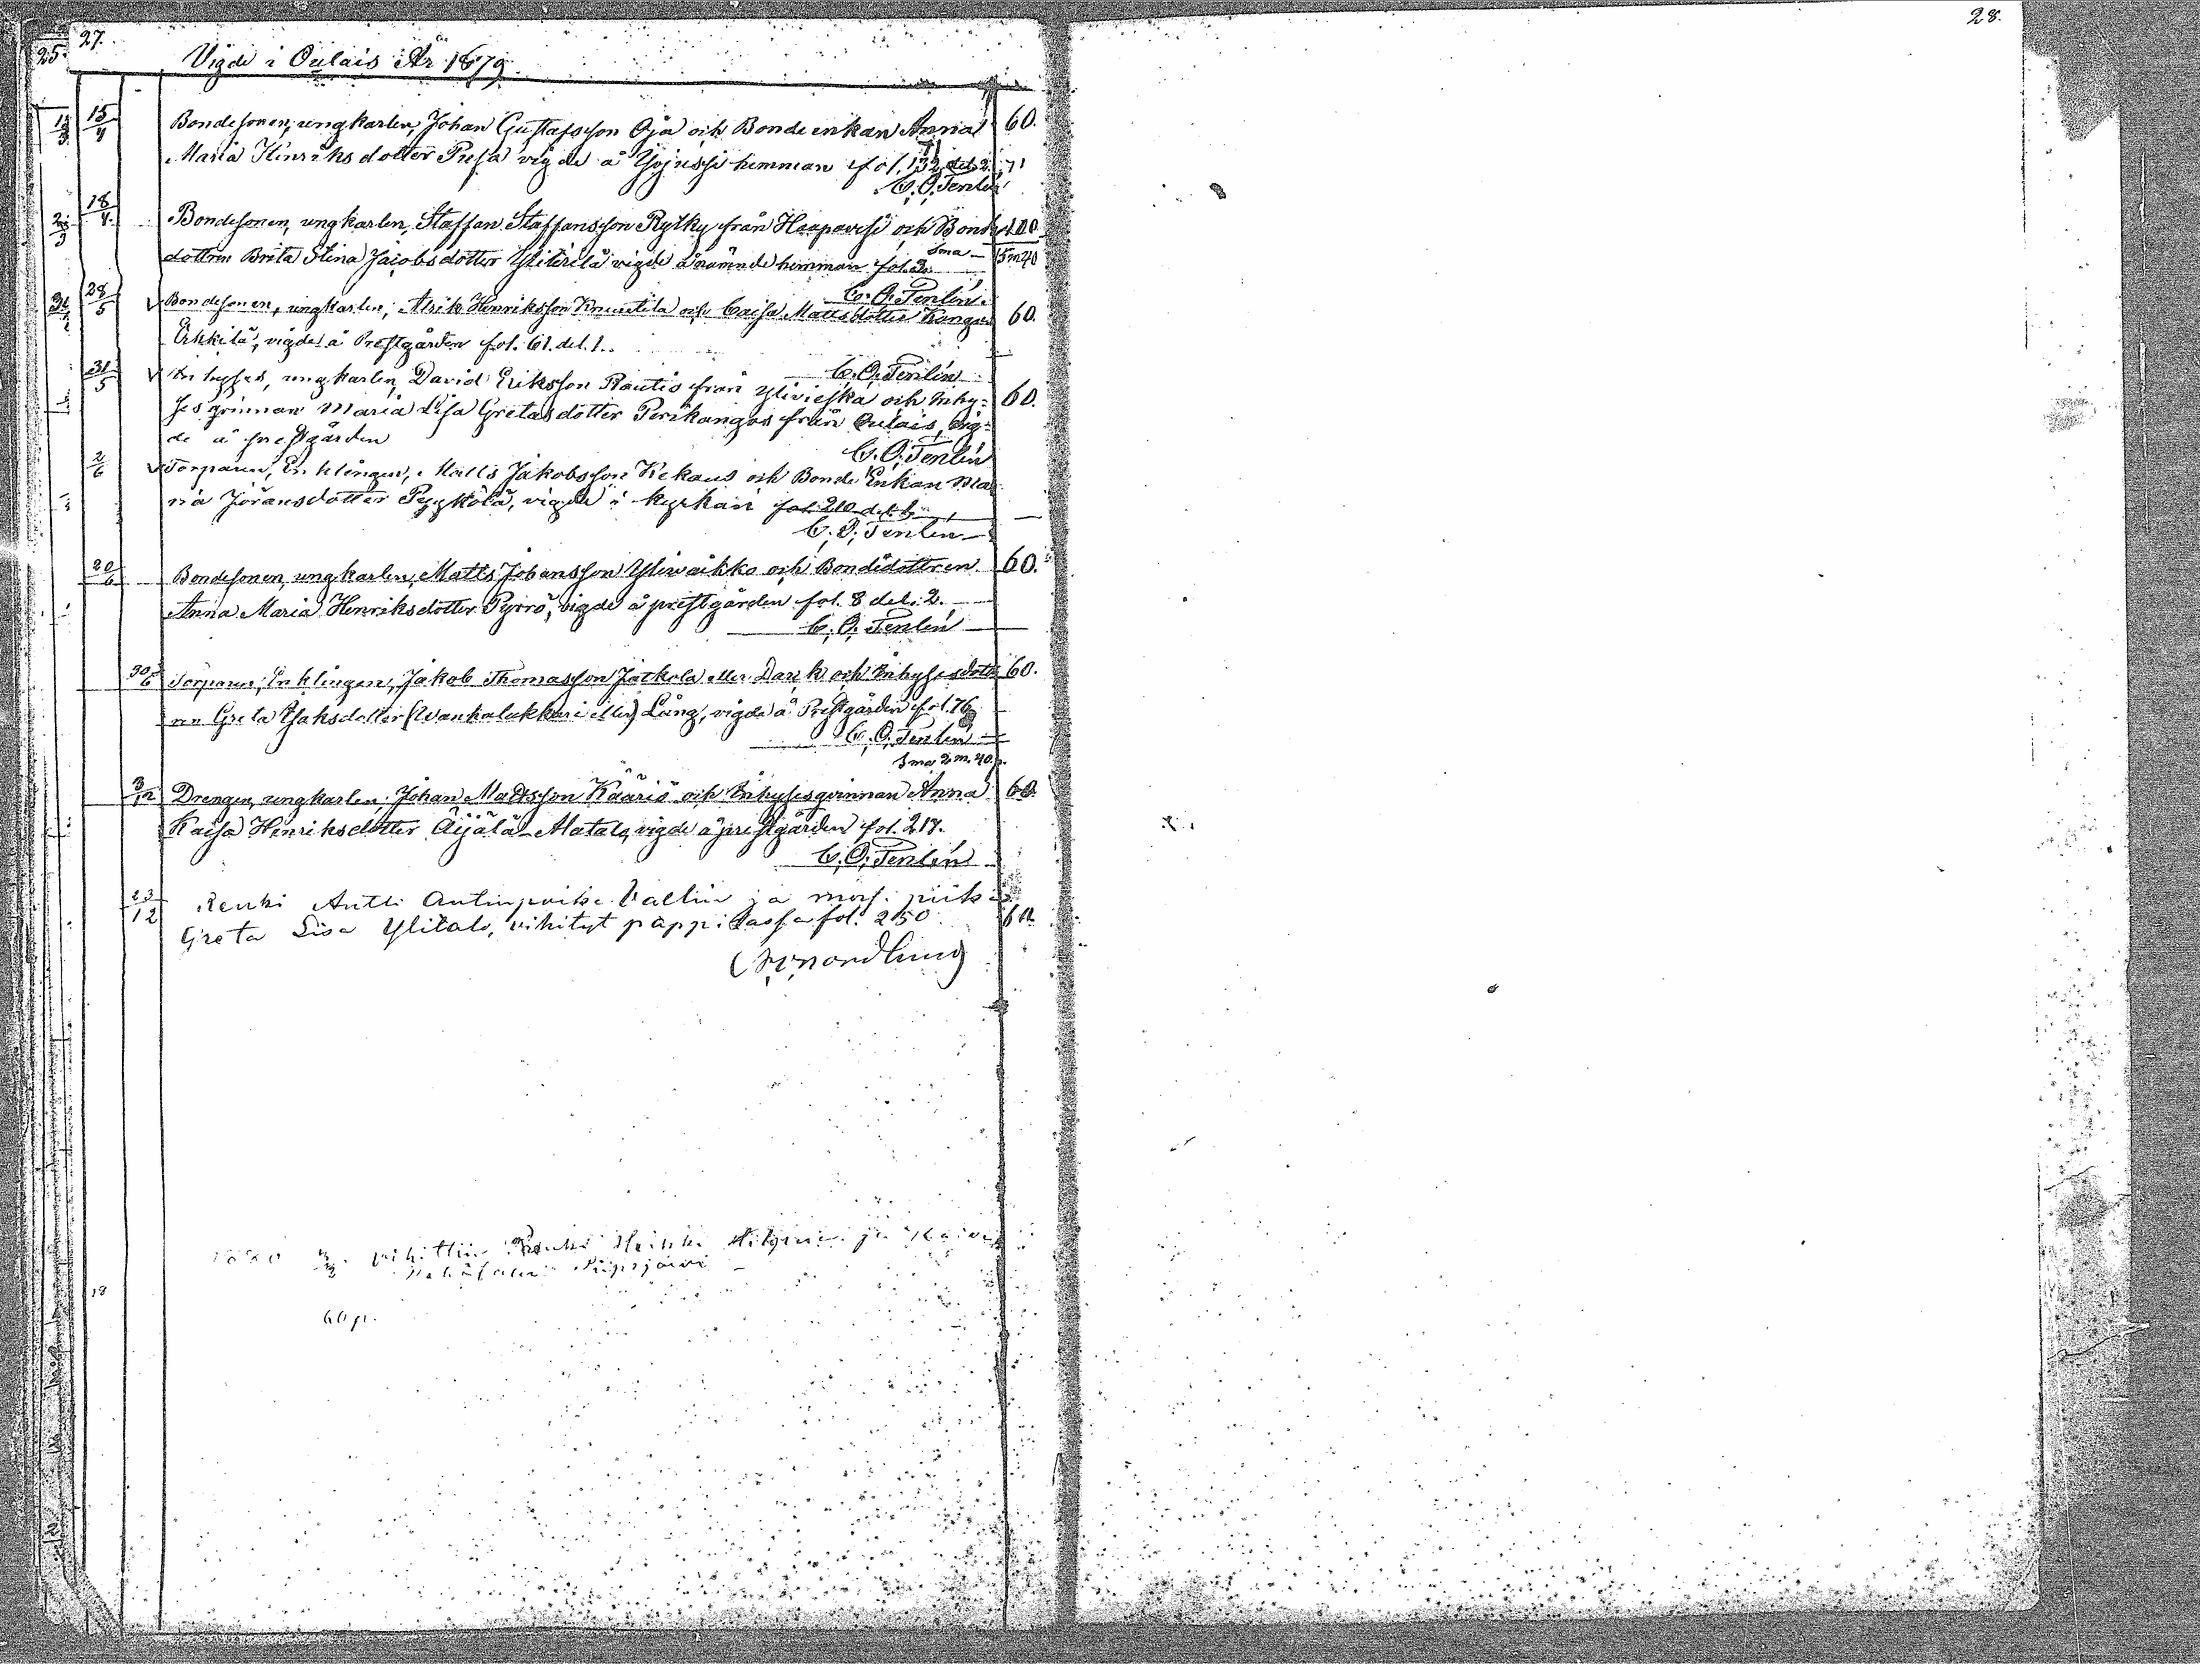 27.
28.
25.
Vigde i Oulais År 1879.
15/4 Bondesonen, ungkarlen, Johan Gustafsson Oja och Bondeenkan Anna 60.
Maria Henriksdotter Pesä vigde å Yojussi hemman fol. 132 del. 2. 71
C. O. Tenlén
18/4. Bondesonen, ungkarlen, Staffan Staffansson Rytky från Haapavesi och Bonde
dottren Brita Stina Jacobsdotter Ylitérilä vigde å nämnde hemman fol. 2. Sma 15 m 40
C. O. Tenlén.
28/5 Bondesonen, ungkarlen, Alrik Henriksson Knuutila och Caisa Mattsdotter Kangas 60.
Erkkilä, vigde å Prestgården fol. 61. del. 1.
C. O. Tenlén
31/5 Inhyses, ungkarlen, David Eriksson Rautio från Ylivieska och Inhy= 60.
sesqvinnan Maria Lisa Gretasdotter Perikangas från Oulais, Vig=
de å prestgården
C. O. Tenlén
2/6 Torparen, Enklingen, Matts Jakobsson Kekaus och Bonde Enkan Ma
ria Jöransdotter Pyykölä, vigde i kyrkan fol. 210 del. 1.
C. O. Tenlén
20/6 Bondesonen, ungkarlen, Matts Johansson Yliwaikko och Bondedottren 60.
Anna Maria Henriksdotter Pyrrö, vigde å prestgården fol. 8 del. 2.
C. O. Tenlén
30/6 Torparen, Enklingen, Jakob Thomasson Jäckola eller Darik och Inhysesdott 60.
ren Greta Isaksdotter (Wankalukkari eller) Lång, vigde å Prestgården fol. 76
C. O. Tenlén
Sma 2 m. 40 p.
3/12 Drengen, ungkarlen, Johan Mattsson Kääriö och Inhysesqvinnan Anna 60.
Kaisa Henriksdotter Äijälä-Alatalo, vigde å prestgården fol. 217.
C. O. Tenlén
23/12 Renki Antti Antinpoika Valtin ja mors. piika
Greta Liisa Ylitalo, vihityt pappilassa fol. 250 60.
Nordlund
1880 vihittiin Renki Heikki ja Kaisa
Pyhäjärvi
60 p.